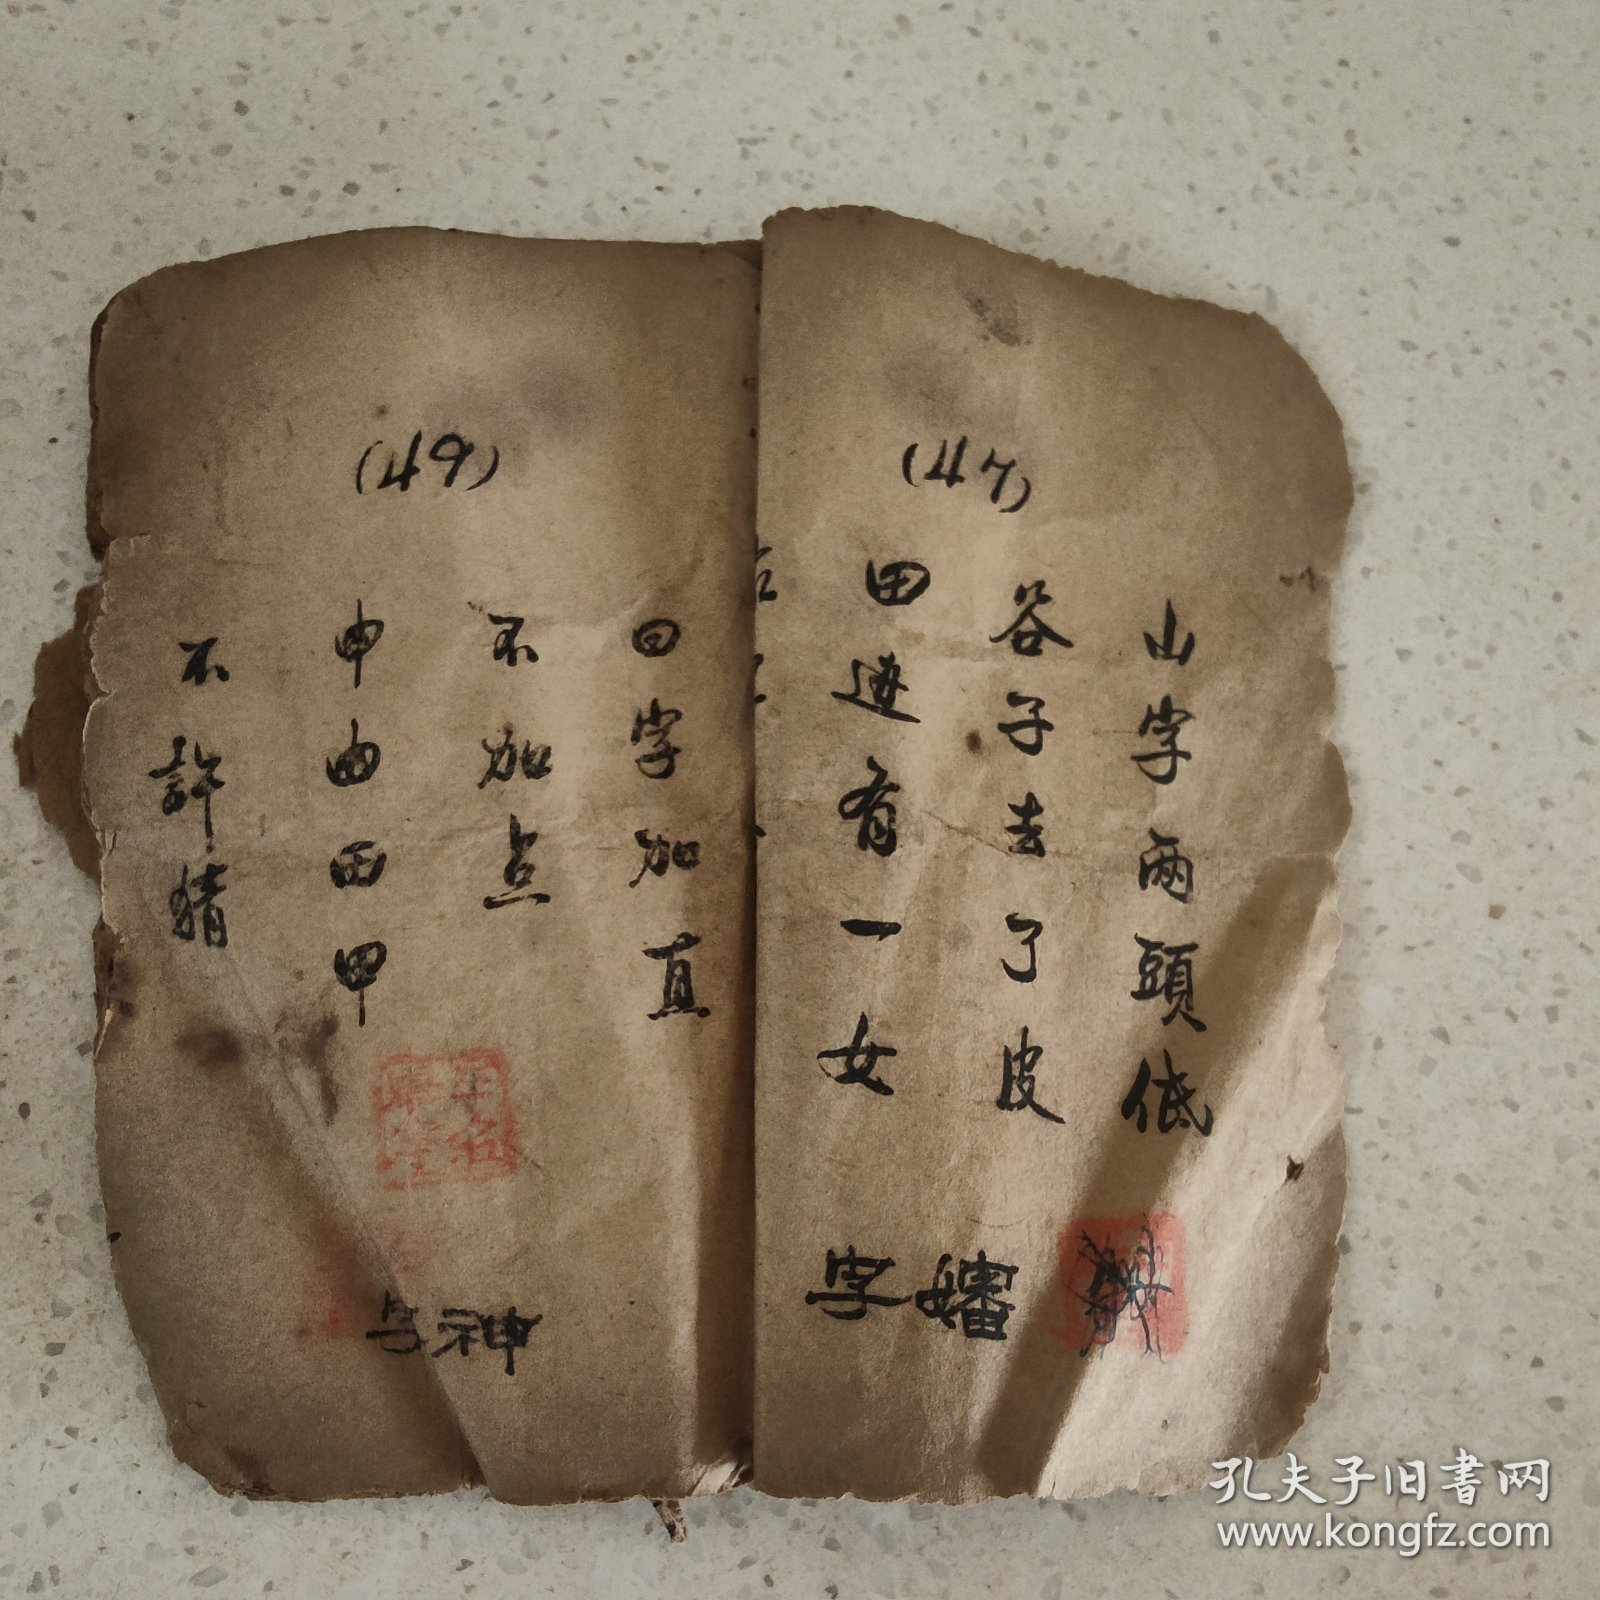 (47)
山字兩頭低
谷子去了皮
田边有一女
字
(49)
曰字加直
不加点
申由西甲
不許猜
神
孔夫子旧書网
www.kongfz.com